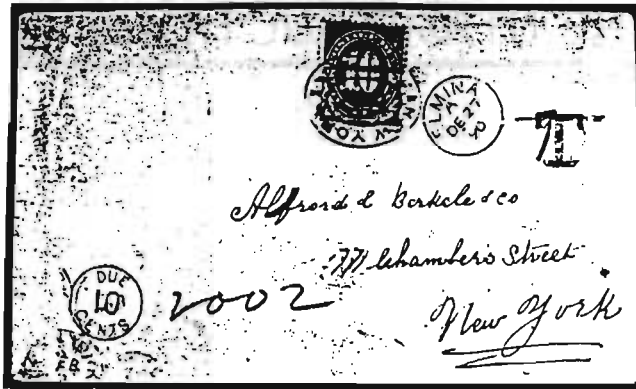 10
NEW YORK
ELMINA
A
DE 27
90
T
Alfrord & Berkele & co
77 Chambers Street
New York
DUE
10
CENTS
2002
FEB 2